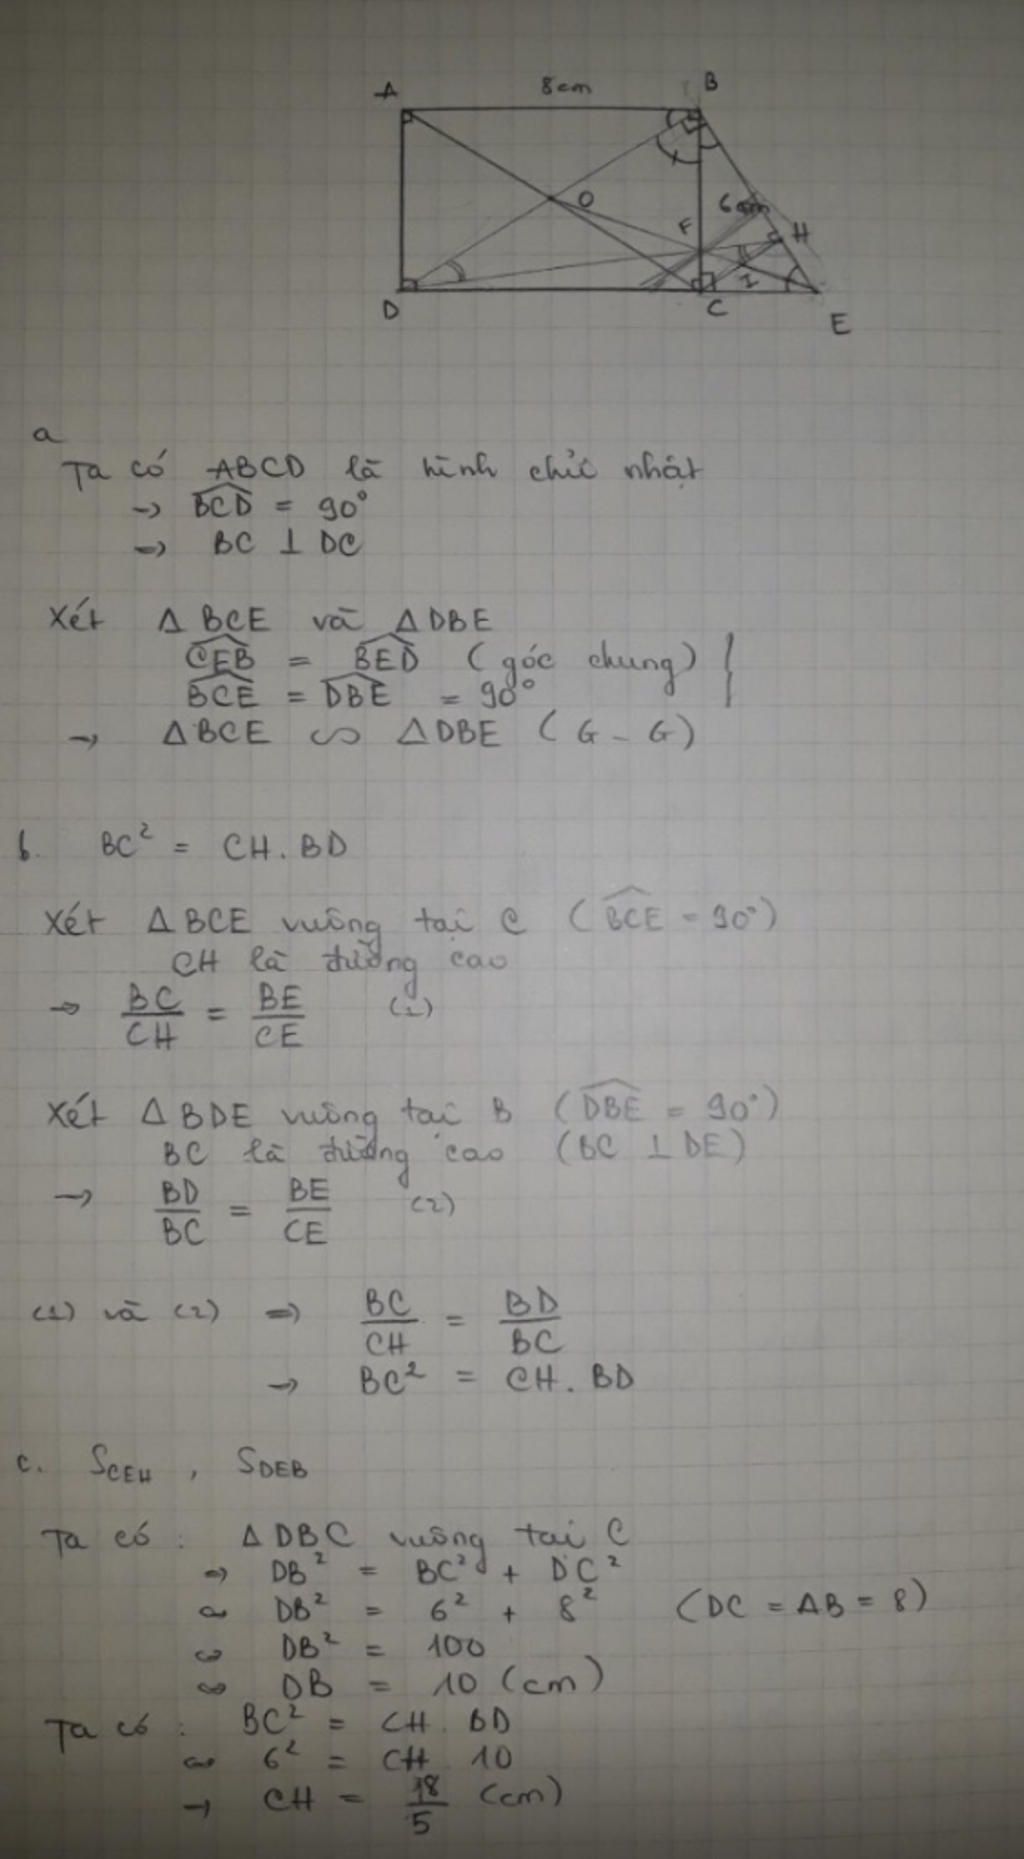 A 8cm B
O 6cm
F H
I
D C E
a
Ta có ABCD là hình chữ nhật
→ BCD = 90°
→ BC ⊥ DC
Xét Δ BCE và Δ DBE
CEB = BED (góc chung) }
BCE = DBE = 90°
→ ΔBCE ∽ ΔDBE (G - G)
b. BC² = CH. BD
Xét ΔBCE vuông tại C (BCE = 90°)
CH là đường cao
→ BC/CH = BE/CE (1)
Xét ΔBDE vuông tại B (DBE = 90°)
BC là đường cao (BC ⊥ DE)
→ BD/BC = BE/CE (2)
(1) và (2) → BC/CH = BD/BC
→ BC² = CH. BD
c. S_CEH , S_DEB
Ta có : ΔDBC vuông tại C
→ DB² = BC² + DC²
⇔ DB² = 6² + 8² (DC = AB = 8)
⇔ DB² = 100
⇔ DB = 10 (cm)
Ta có : BC² = CH. BD
⇔ 6² = CH 10
→ CH = 18/5 (cm)